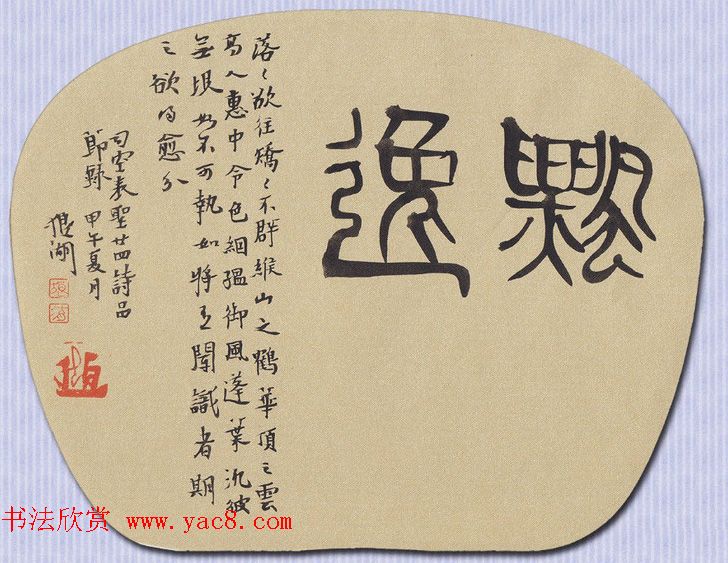 飄逸
落〻欲往矯〻不群緱山之鶴華頂之雲
高人惠中令色絪緼御風蓬葉汎彼
無垠如不可執如將有聞識者期
之欲得愈分
司空表聖廿四詩品
節錄 甲午夏月
湖
书法欣赏 www.yac8.com